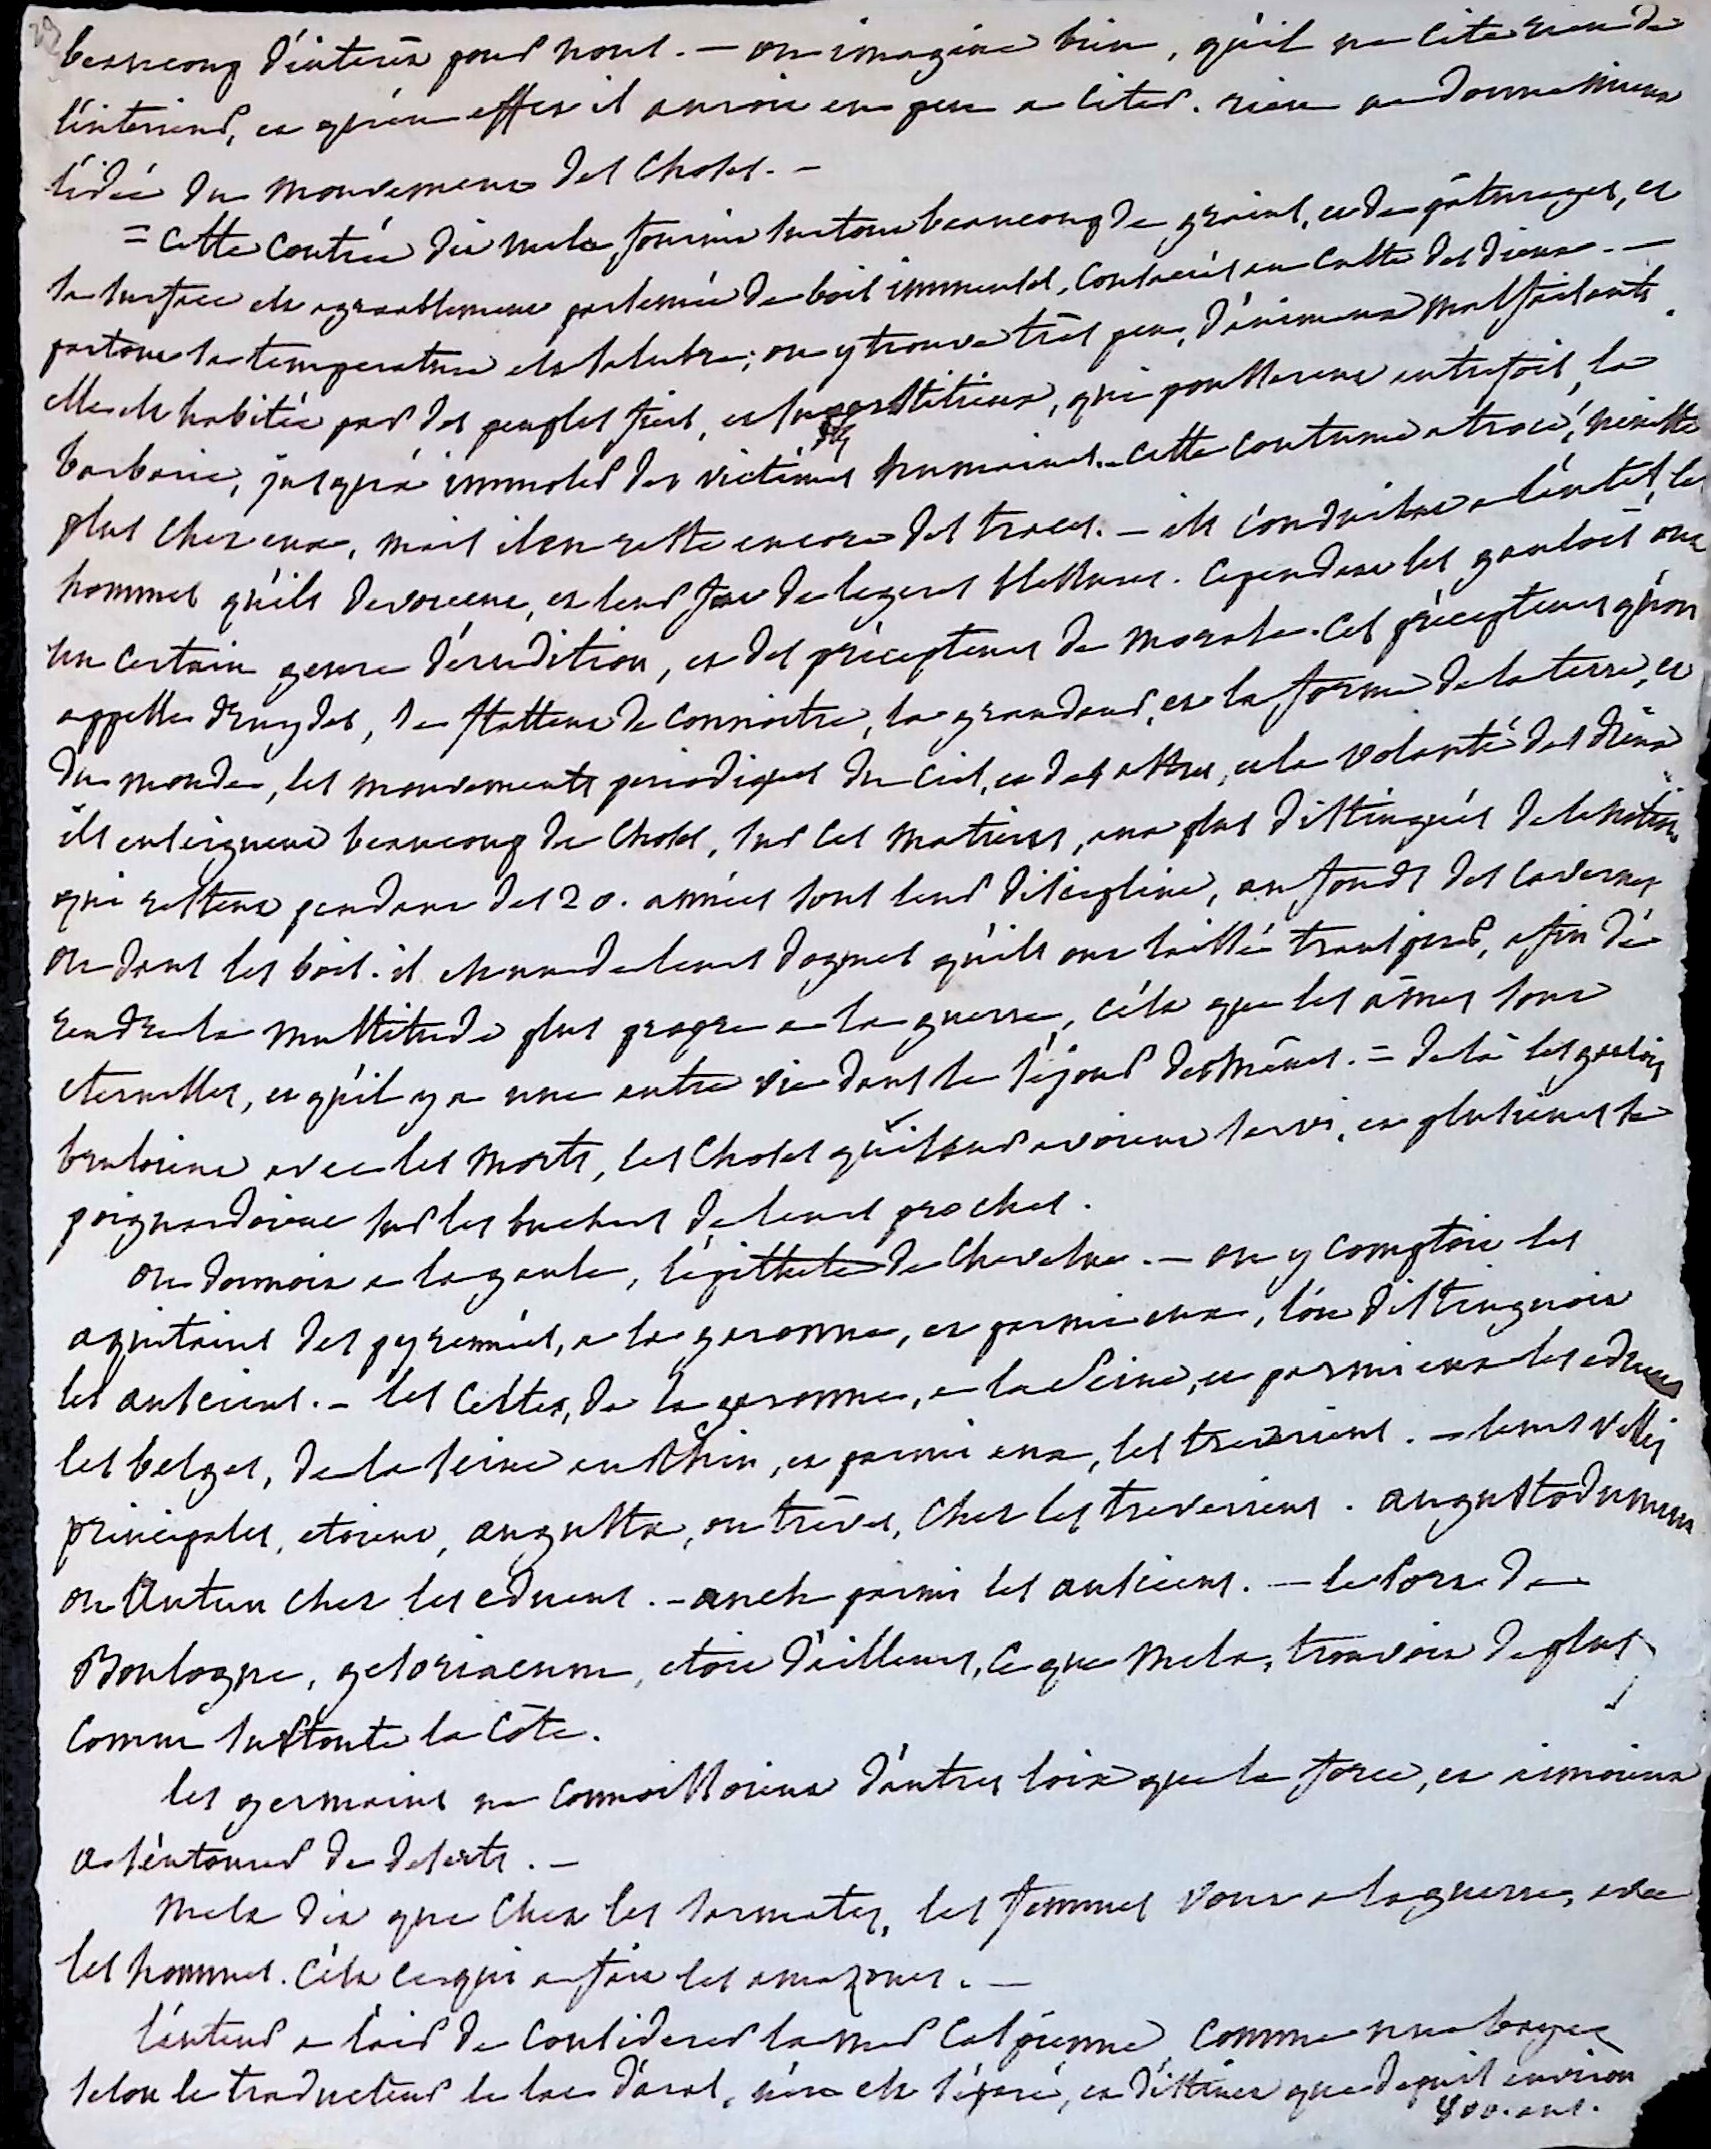 beaucoup d'interêt pour nous. — on imagine bien, qu'il ne cite rien de
l'interieur, et qu'en effet il auroit eu peu a citer. rien ne donne mieux
l'idée du mouvement des choses. —
= cette contrée dit mela, fournit surtout beaucoup de grains, et de pâturages, et
la surface est agreablement parsemée de bois immenses, consacrés au culte des dieux. —
partout la temperature est salubre; on y trouve très peu, d'animaux malfaisants.
elle est habitée par des peuples fiers, et superstitieux, qui pousserent autrefois, la
barbarie, jusqu'à immoler des victimes humaines. - cette coutume atroce, n'existe
plus chez eux, mais il en reste encore des traces. — ils conduisent a l'autel, les
hommes qu'ils devoüent, et leur font de legeres blessures. cependant les gaulois ont
un certain genre d'erudition, et des précepteurs de morale. ces précepteurs qu'on
appelle druydes, se flattent de connoitre, la grandeur, et la forme de la terre, et
du monde, les mouvements periodiques du ciel, et des astres, et la volonté des dieux.
ils enseignent beaucoup de choses, sur ces matieres, aux plus distingués de la nation
qui restent pendant des 20. années sous leur discipline, au fonds des cavernes
ou dans les bois. il est un de leurs dogmes qu'ils ont laissé transpirer, afin de
rendre la multitude plus propre a la guerre, c'est que les âmes sont
eternelles, et qu'il y a une autre vie dans le séjour des mânes. = de là les gaulois
bruloient avec les morts, les choses qui leur avoient servi, et plusieurs se
poignardoient sur les buchers de leurs proches.
on donnoit a la gaule, l'epithete de chevelue. — on y comptoit les
aquitains des pyrennées, a la garonne, et parmi eux, l'on distinguoit
les ausciens. — les celtes, de la garonne, a la seine, et parmi eux les eduens
les belges, de la seine au rhin, et parmi eux, les treveriens. — leurs villes
principales, etoient, augusta, ou trêves, chez les treveriens. augustodunum
ou Autun chez les eduens. - auch parmi les ausciens. — le port de
Boulogne, gesoriacum, etoit d'ailleurs, ce que mela, trouvoit de plus
connu sur toute la côte.
les germains ne connoissoient d'autres loix que la force, et aimoient
a s'entourer de deserts. —
mela dit que chez les sarmates, les femmes vont a la guerre, avec
les hommes. c'est ce qui a fait les amazones. —
l'auteur a l'air de considerer la mer caspienne comme un
selon le traducteur le lac d'aral, n'en est séparé, et distinct que depuis environ
400. ans.